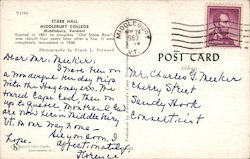 V1744
STARR HALL
MIDDLEBURY COLLEGE
Middlebury, Vermont
Erected in 1861 to complete "Old Stone Row"
was rebuilt four years later after a fire. It was
completely remodeled in 1948.
Photography by Frank L. Forward
MIDDLEBURY
1963
VT.
POST CARD
Dear Mr. Meeker.
I have been on
a wonderful ten day trip
with the Hagemeyers. We
toured Cape Cod, then on
up to Quebec, Montreal and
are now here in Middlebury
Vt. on our way home.
See you soon, I
hope. Affectionately,
Florence
Mr. Charles G. Meeker
Cherry Street
Sandy Hook
Connecticut